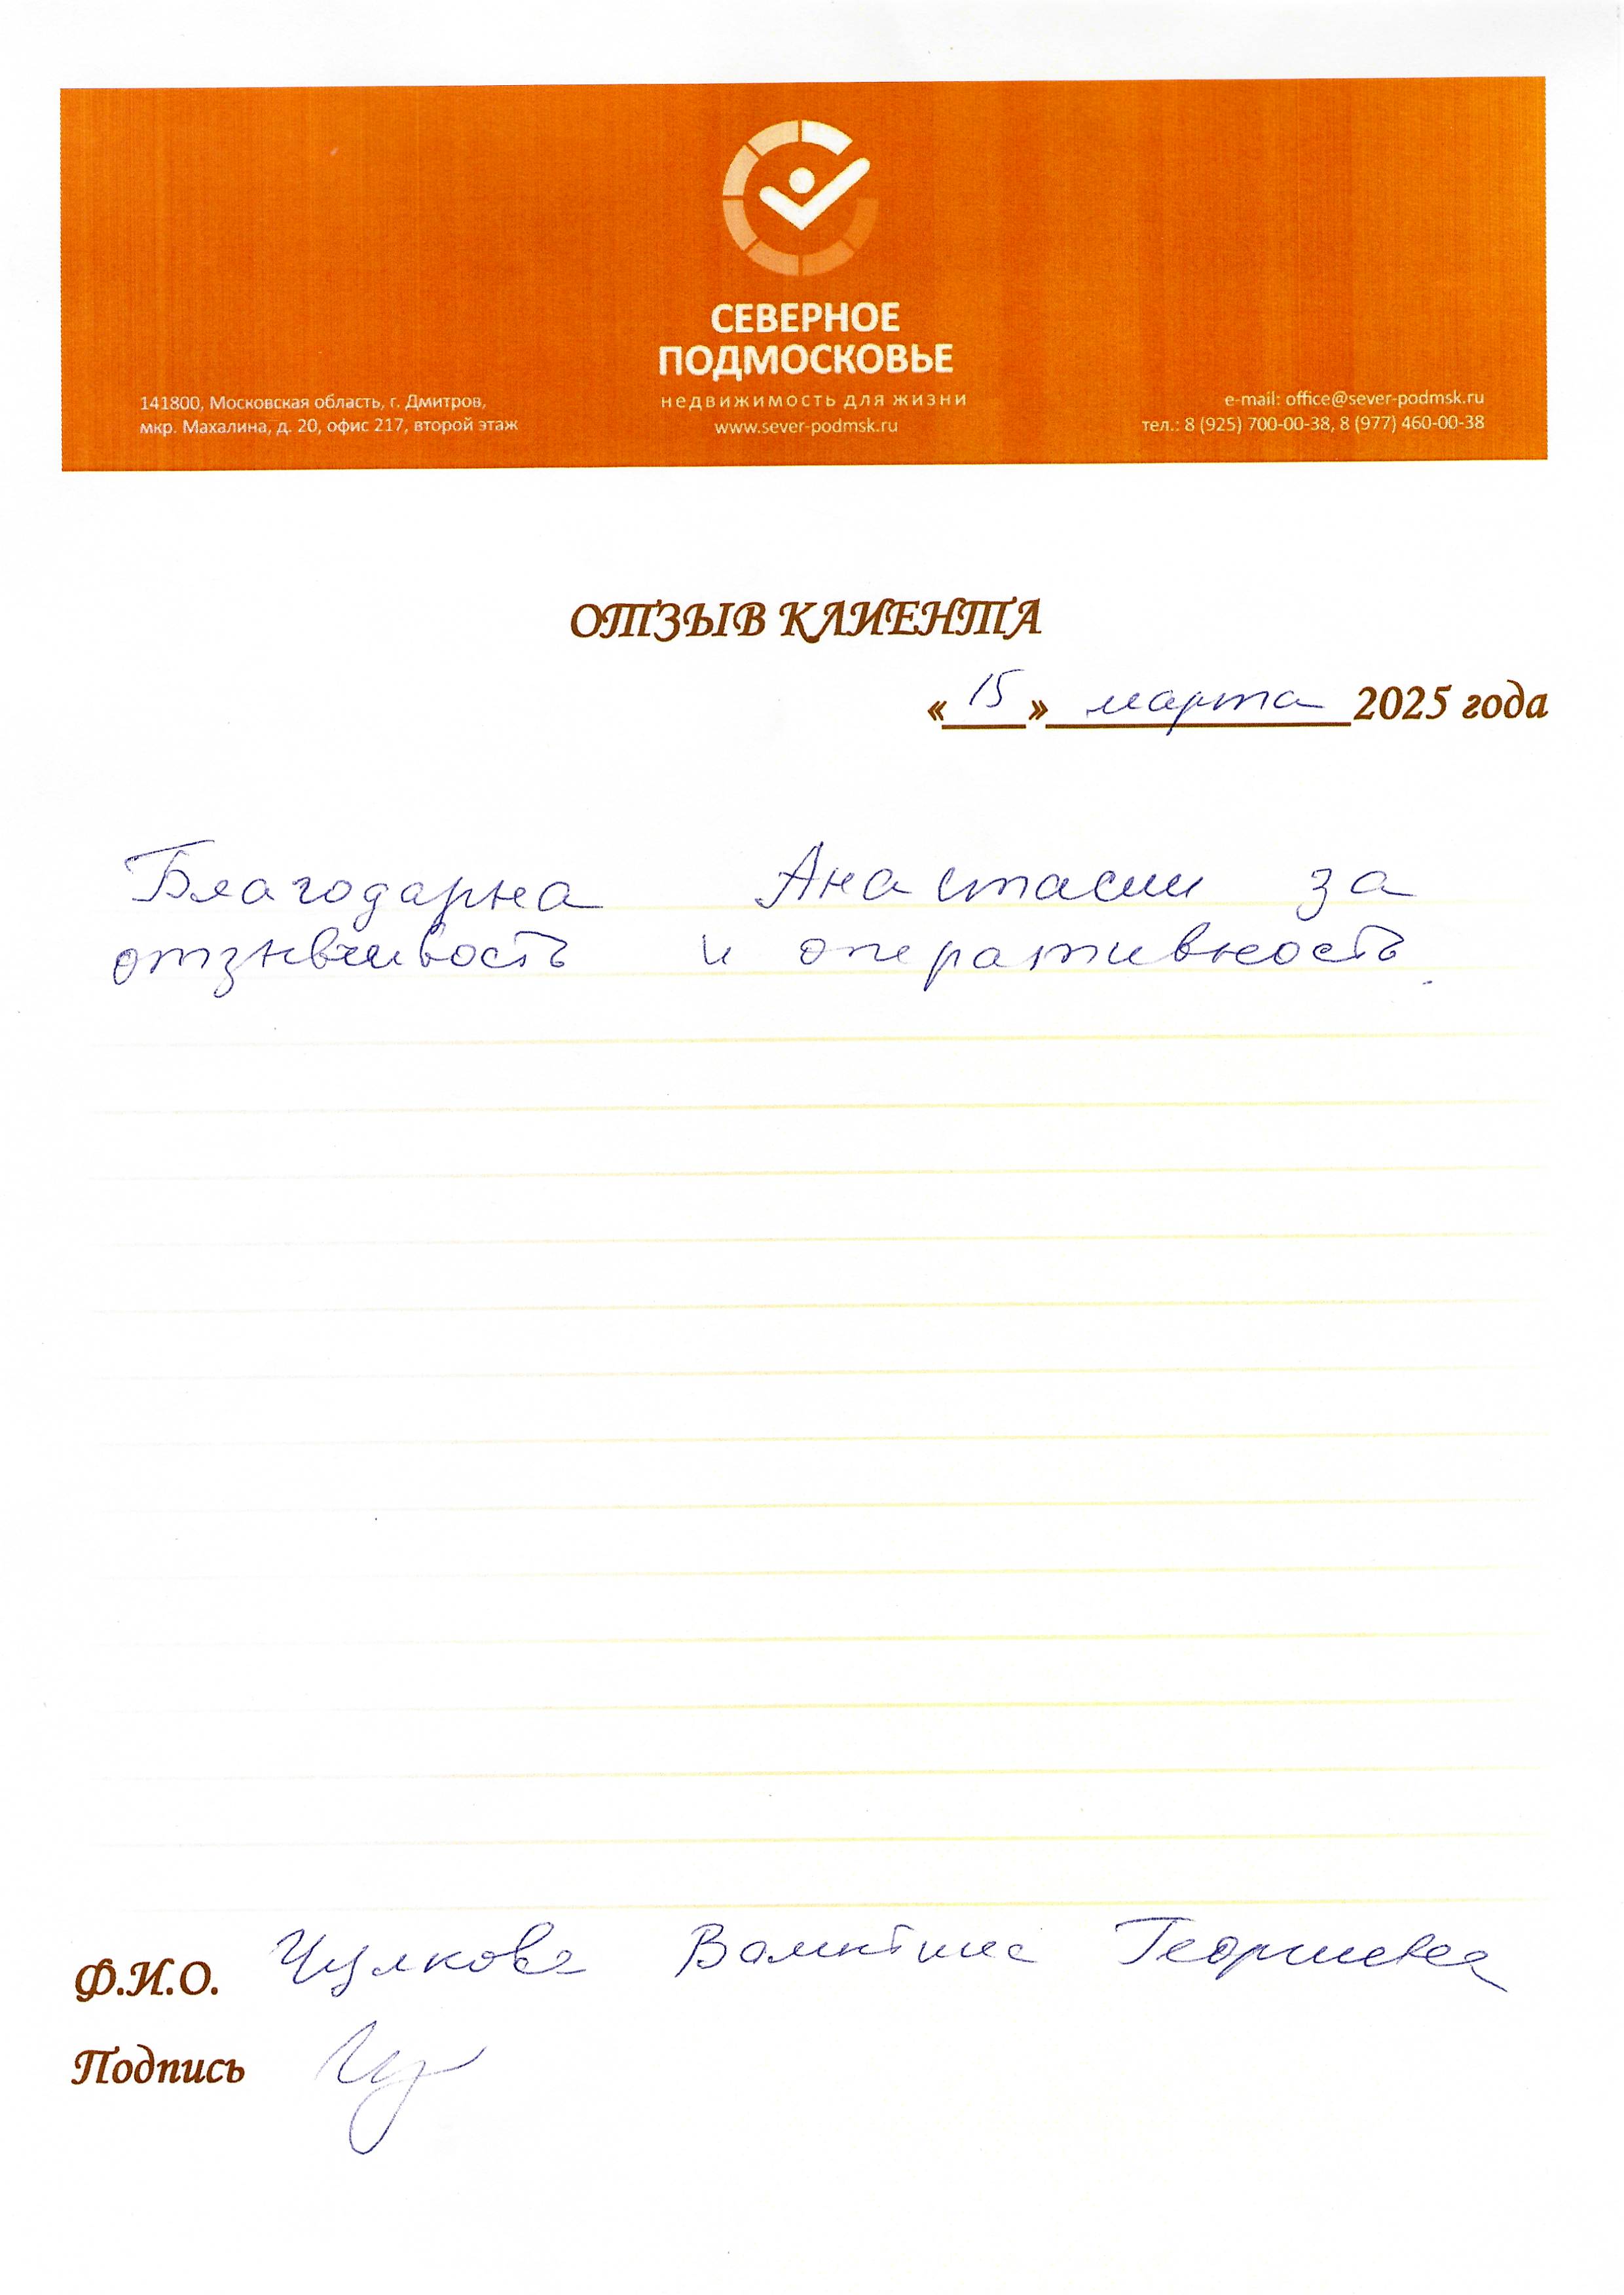 СЕВЕРНОЕ
ПОДМОСКОВЬЕ
недвижимость для жизни
www.sever-podmsk.ru
141800, Московская область, г. Дмитров,
мкр. Махалина, д. 20, офис 217, второй этаж
e-mail: office@sever-podmsk.ru
тел.: 8 (925) 700-00-38, 8 (977) 460-00-38
ОТЗЫВ КЛИЕНТА
«15» марта 2025 года
Благодарна Анастасии за
отзывчивость и оперативность.
Ф.И.О. Чулкова Валентина Георгиевна
Подпись